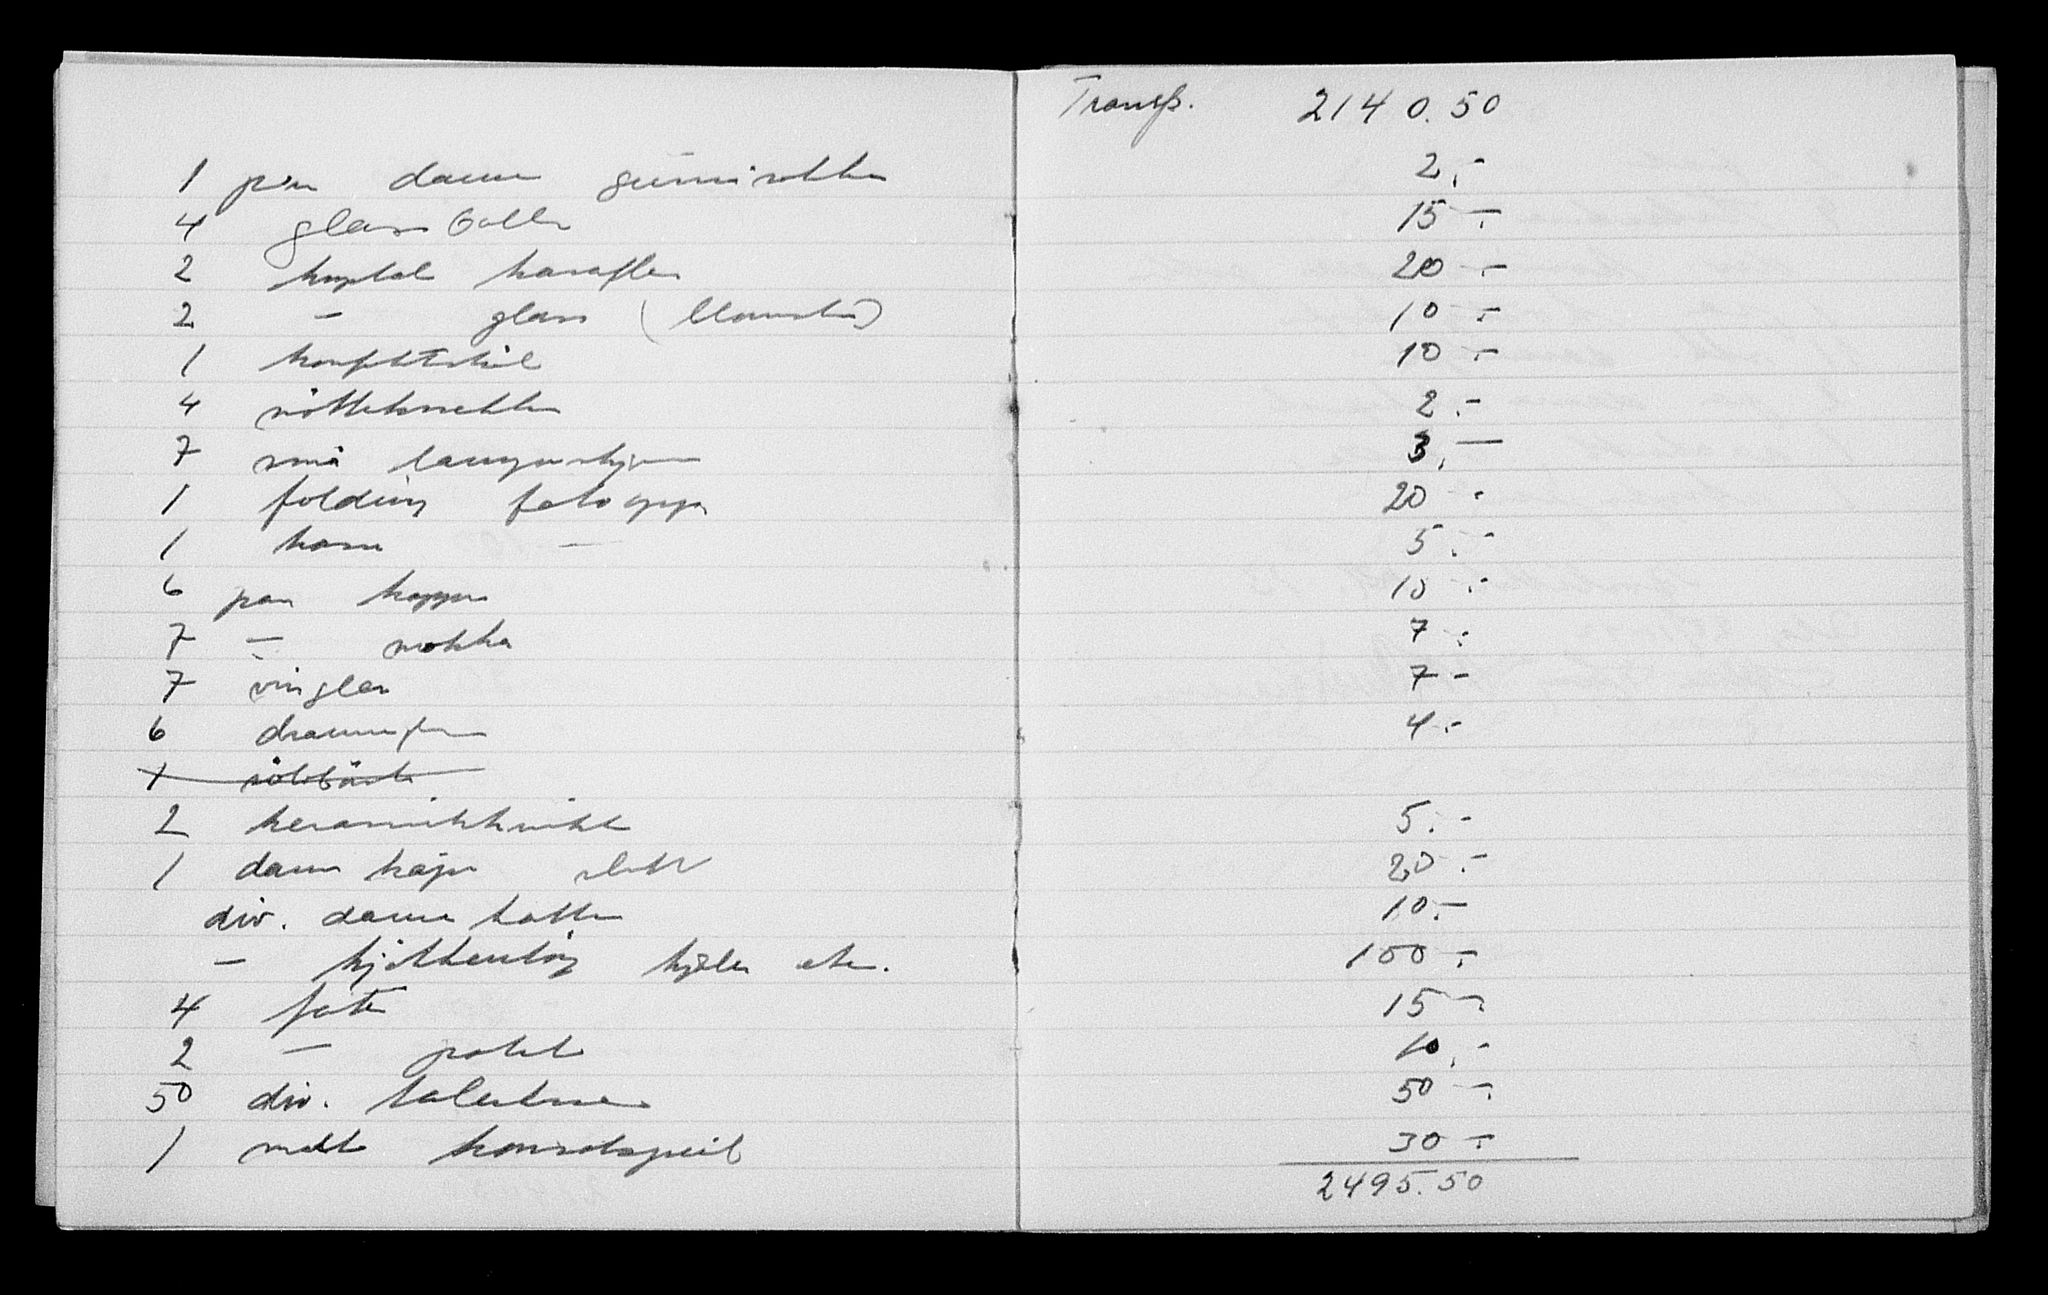 Transp. 2140.50
1 par dame gummisokker 2.-
4 glassboller 15.-
2 krystal karafler 20.-
2 - glass (blomster) 10.-
1 konfektskål 10.-
4 nötteknekker 2.-
7 små lampeskjermer 3.-
1 folding fotoapp. 20.-
1 kasse - 5.-
6 par kopper 10.-
7 - mokka 7.-
7 vinglas 7.-
6 dramsglas 4.-
1 sölvbörste
2 keramikk 5.-
1 dame kåpe slitt 20.-
div. dame hatter 10.-
- kjökkentöy kjeler etc. 100.-
4 fate 15.-
2 - potet 10.-
50 div. talerkner 50.-
1 konsolspeil 30.-
2495.50